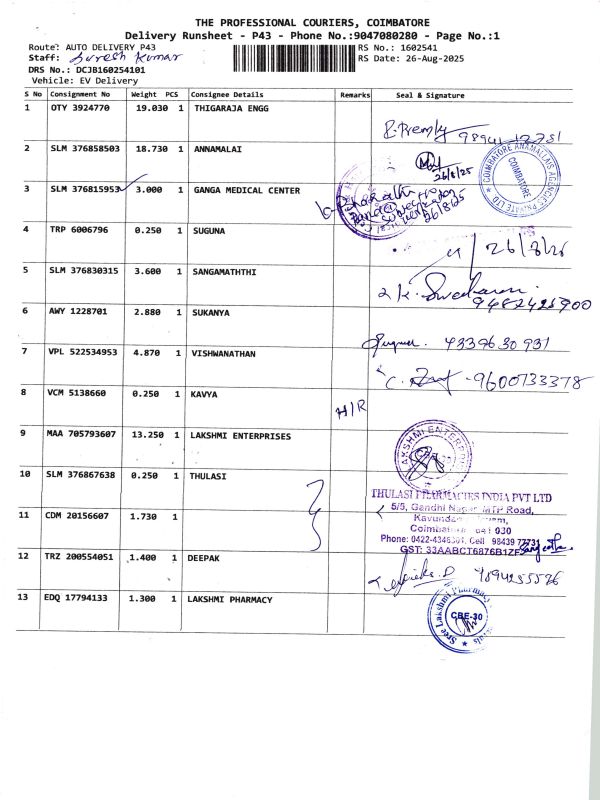 THE PROFESSIONAL COURIERS, COIMBATORE
Delivery Runsheet - P43 - Phone No.:9047080280 - Page No.:1
Route: AUTO DELIVERY P43 RS No.: 1602541
Staff: Suresh Kumar RS Date: 26-Aug-2025
DRS No.: DCJB160254101
Vehicle: EV Delivery
S No Consignment No Weight PCS Consignee Details Remarks Seal & Signature
1 OTY 3924770 19.030 1 THIGARAJA ENGG
2 SLM 376858503 18.730 1 ANNAMALAI
26/8/25
COIMBATORE ANAMALLAIS AGENCIES PRIVATE LTD
COIMBATORE
3 SLM 376815953 3.000 1 GANGA MEDICAL CENTER
26/8/25
4 TRP 6006796 0.250 1 SUGUNA
26/8/25
5 SLM 376830315 3.600 1 SANGAMATHTHI
9482425900
6 AWY 1228701 2.880 1 SUKANYA
9339630931
7 VPL 522534953 4.870 1 VISHWANATHAN
9600733378
8 VCM 5138660 0.250 1 KAVYA
H/R
9 MAA 705793607 13.250 1 LAKSHMI ENTERPRISES
LAKSHMI ENTERPRISES
10 SLM 376867638 0.250 1 THULASI
THULASI PHARMACIES INDIA PVT LTD
5/5, Gandhi Nagar, MTP Road,
11 CDM 20156607 1.730 1
Phone: 0422-4346301, Cell 98439 77731
GST: 33AABCT6876B1ZF
12 TRZ 200554051 1.400 1 DEEPAK
13 EDQ 17794133 1.300 1 LAKSHMI PHARMACY
Sree Lakshmi Pharmacy
CBE-30